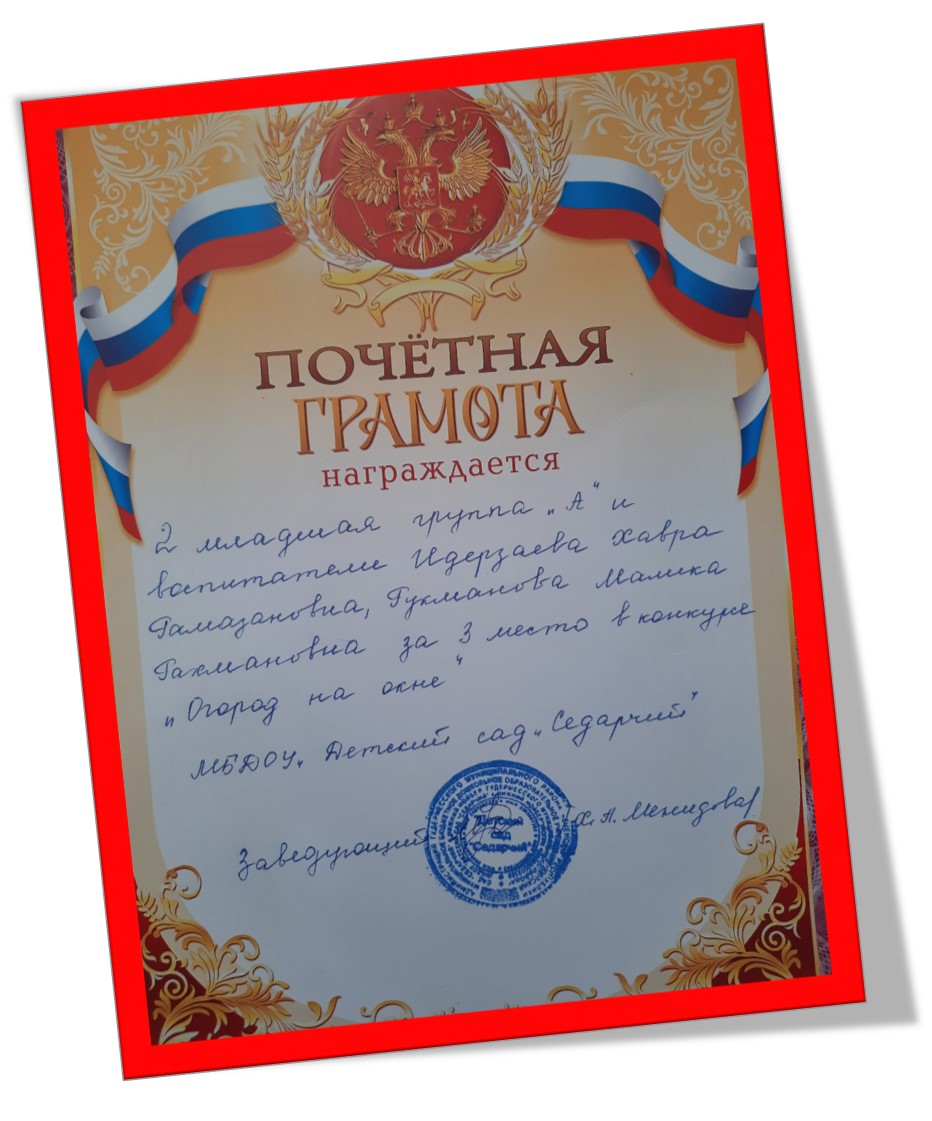 ПОЧЁТНАЯ
ГРАМОТА
награждается
2 младшая группа „А“ и
воспитатели Идерзаева Хавра
Рамазановна, Рукманова Малика
Рахмановна за 3 место в конкурсе
„Огород на окне“
МБДОУ „Детский сад „Седарчий“
Заведующий Х.А. Межидова
Детский
сад
"Седарчий"